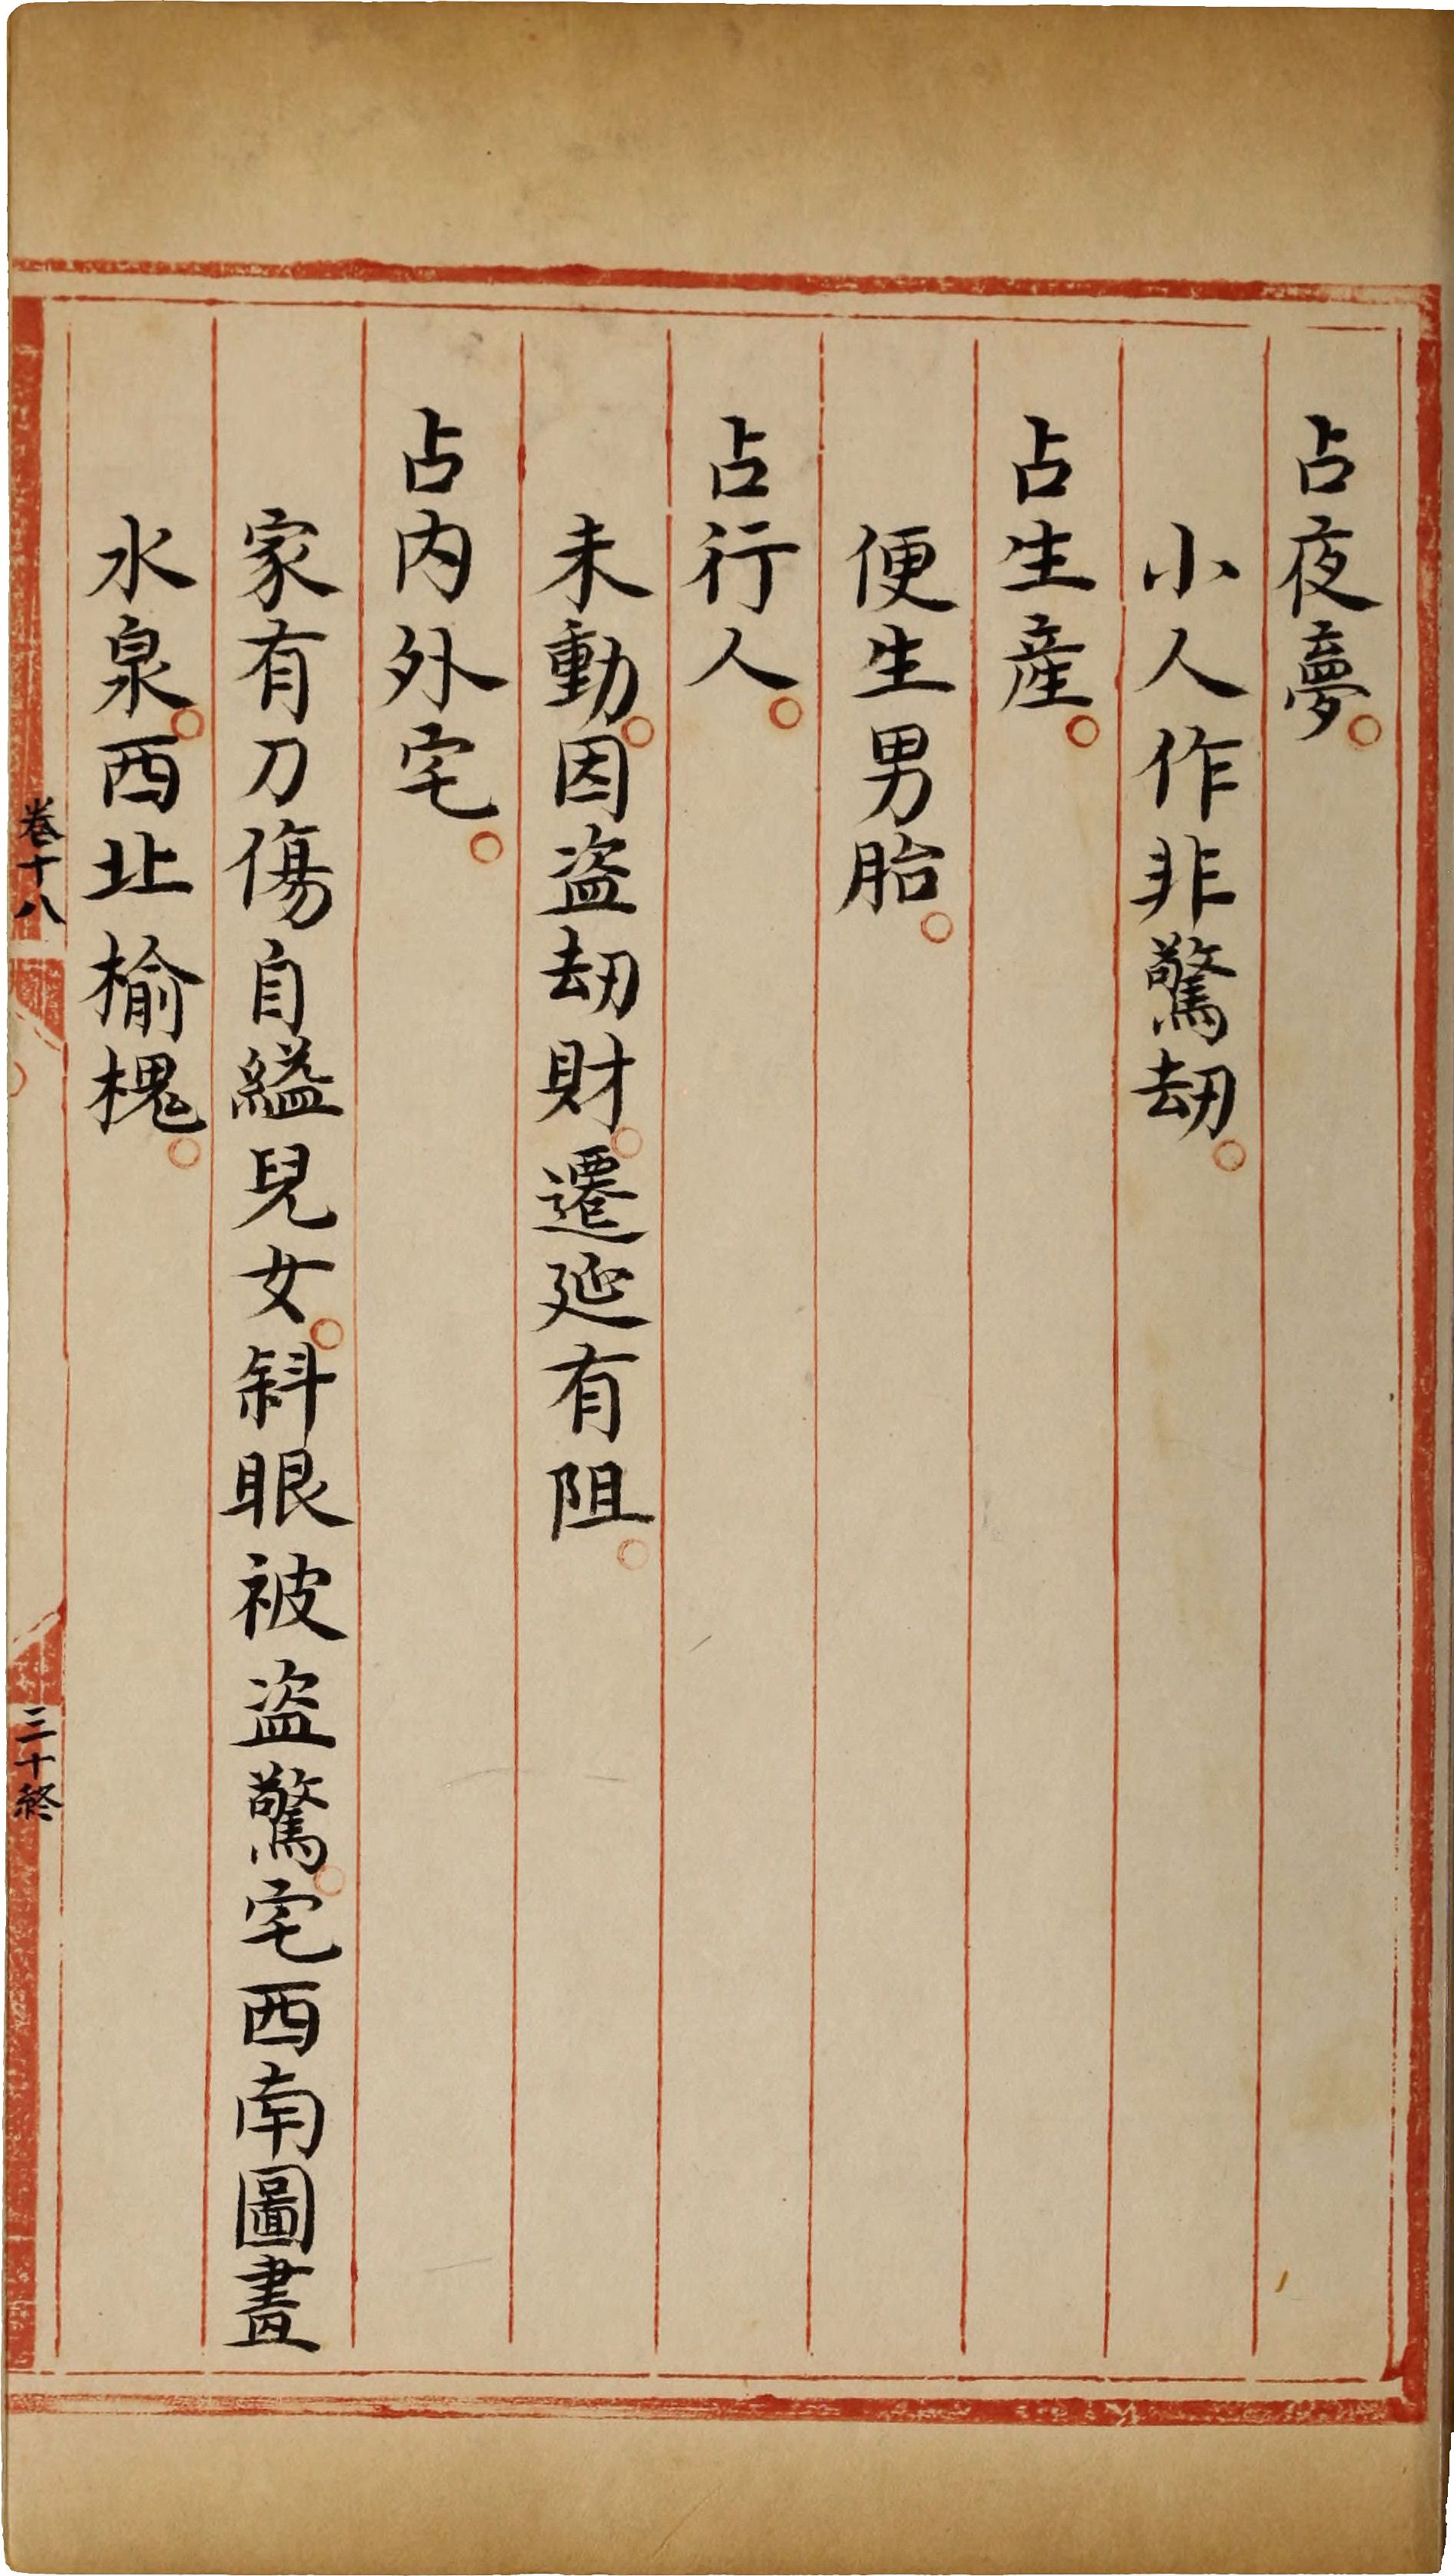 占夜夢。
小人作非驚刼。
占生產。
便生男胎。
占行人。
未動。因盜刼財。遷延有阻。
占內外宅。
家有刀傷自縊兒女。斜眼被盜驚。宅西南圖畫
水泉。西北榆槐。
卷十八
三十終